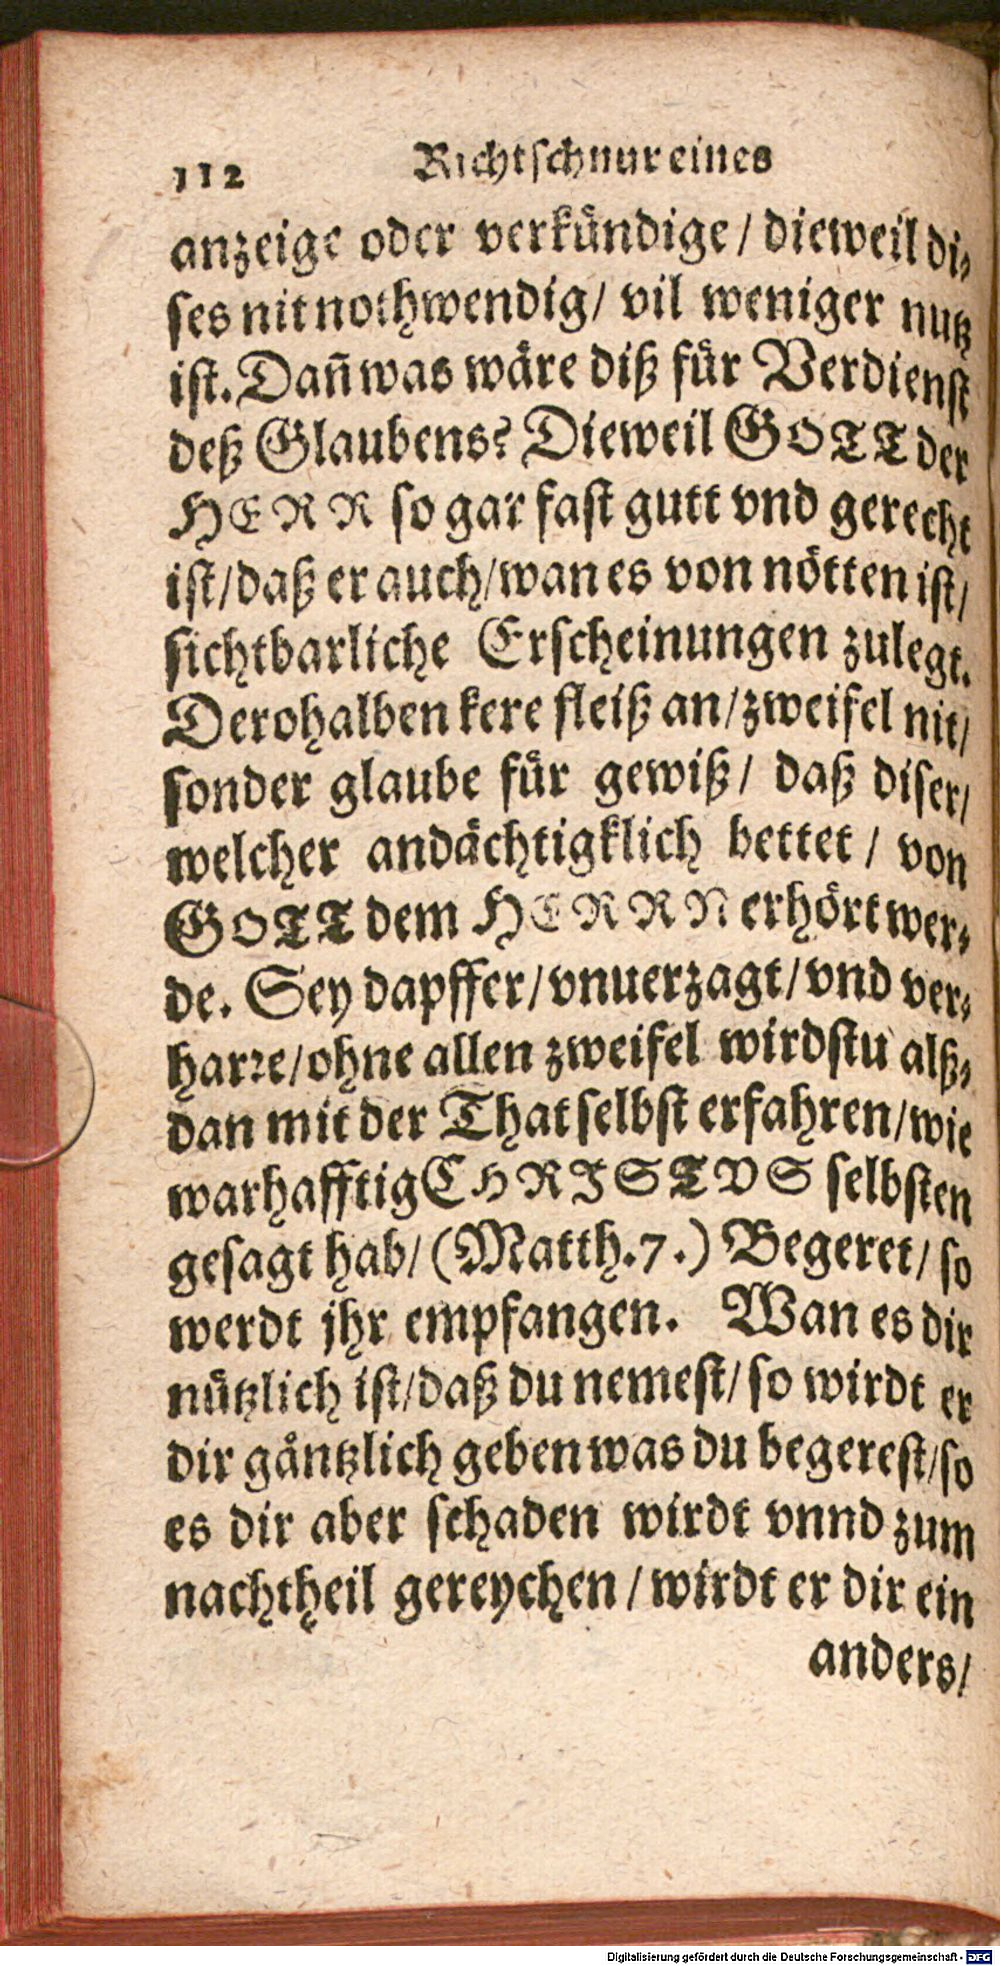 112 Richtschnur eines
anzeige oder verkündige / dieweil di⸗
ses nit nothwendig / vil weniger nutz
ist. Dañ was wäre diß für Verdienst
deß Glaubens? Dieweil GOTT der
HERR so gar fast gutt vnd gerecht
ist / daß er auch / wan es von nötten ist /
sichtbarliche Erscheinungen zulegt.
Derohalben kere fleiß an / zweifel nit /
sonder glaube für gewiß / daß diser /
welcher andächtigklich bettet / von
GOTT dem HERRN erhört wer⸗
de. Sey dapffer / vnuerzagt / vnd ver⸗
harre / ohne allen zweifel wirdstu alß⸗
dan mit der That selbst erfahren / wie
warhafftig CHRISTVS selbsten
gesagt hab / (Matth. 7.) Begeret / so
werdt jhr empfangen. Wan es dir
nützlich ist / daß du nemest / so wirdt er
dir gäntzlich geben was du begerest / so
es dir aber schaden wirdt vnnd zum
nachtheil gereychen / wirdt er dir ein
anders /
Digitalisierung gefördert durch die Deutsche Forschungsgemeinschaft - DFG